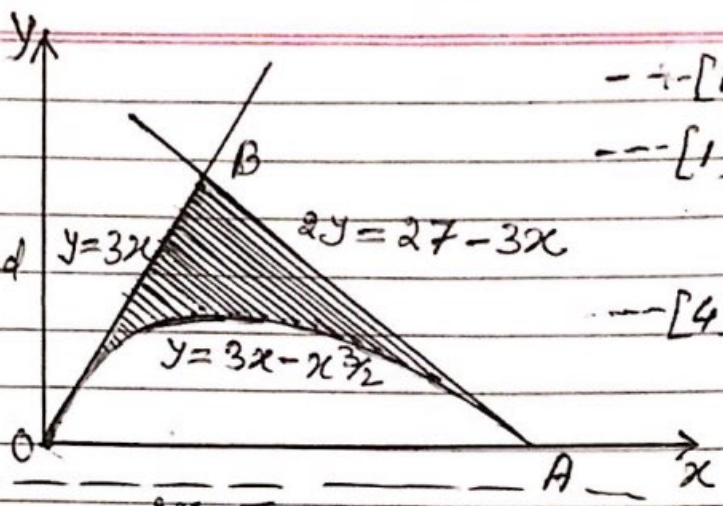 y
--+-[
B
---[1
y=3x
2y = 27-3x
d
---[4
y=3x-x^3/2
O
A
x